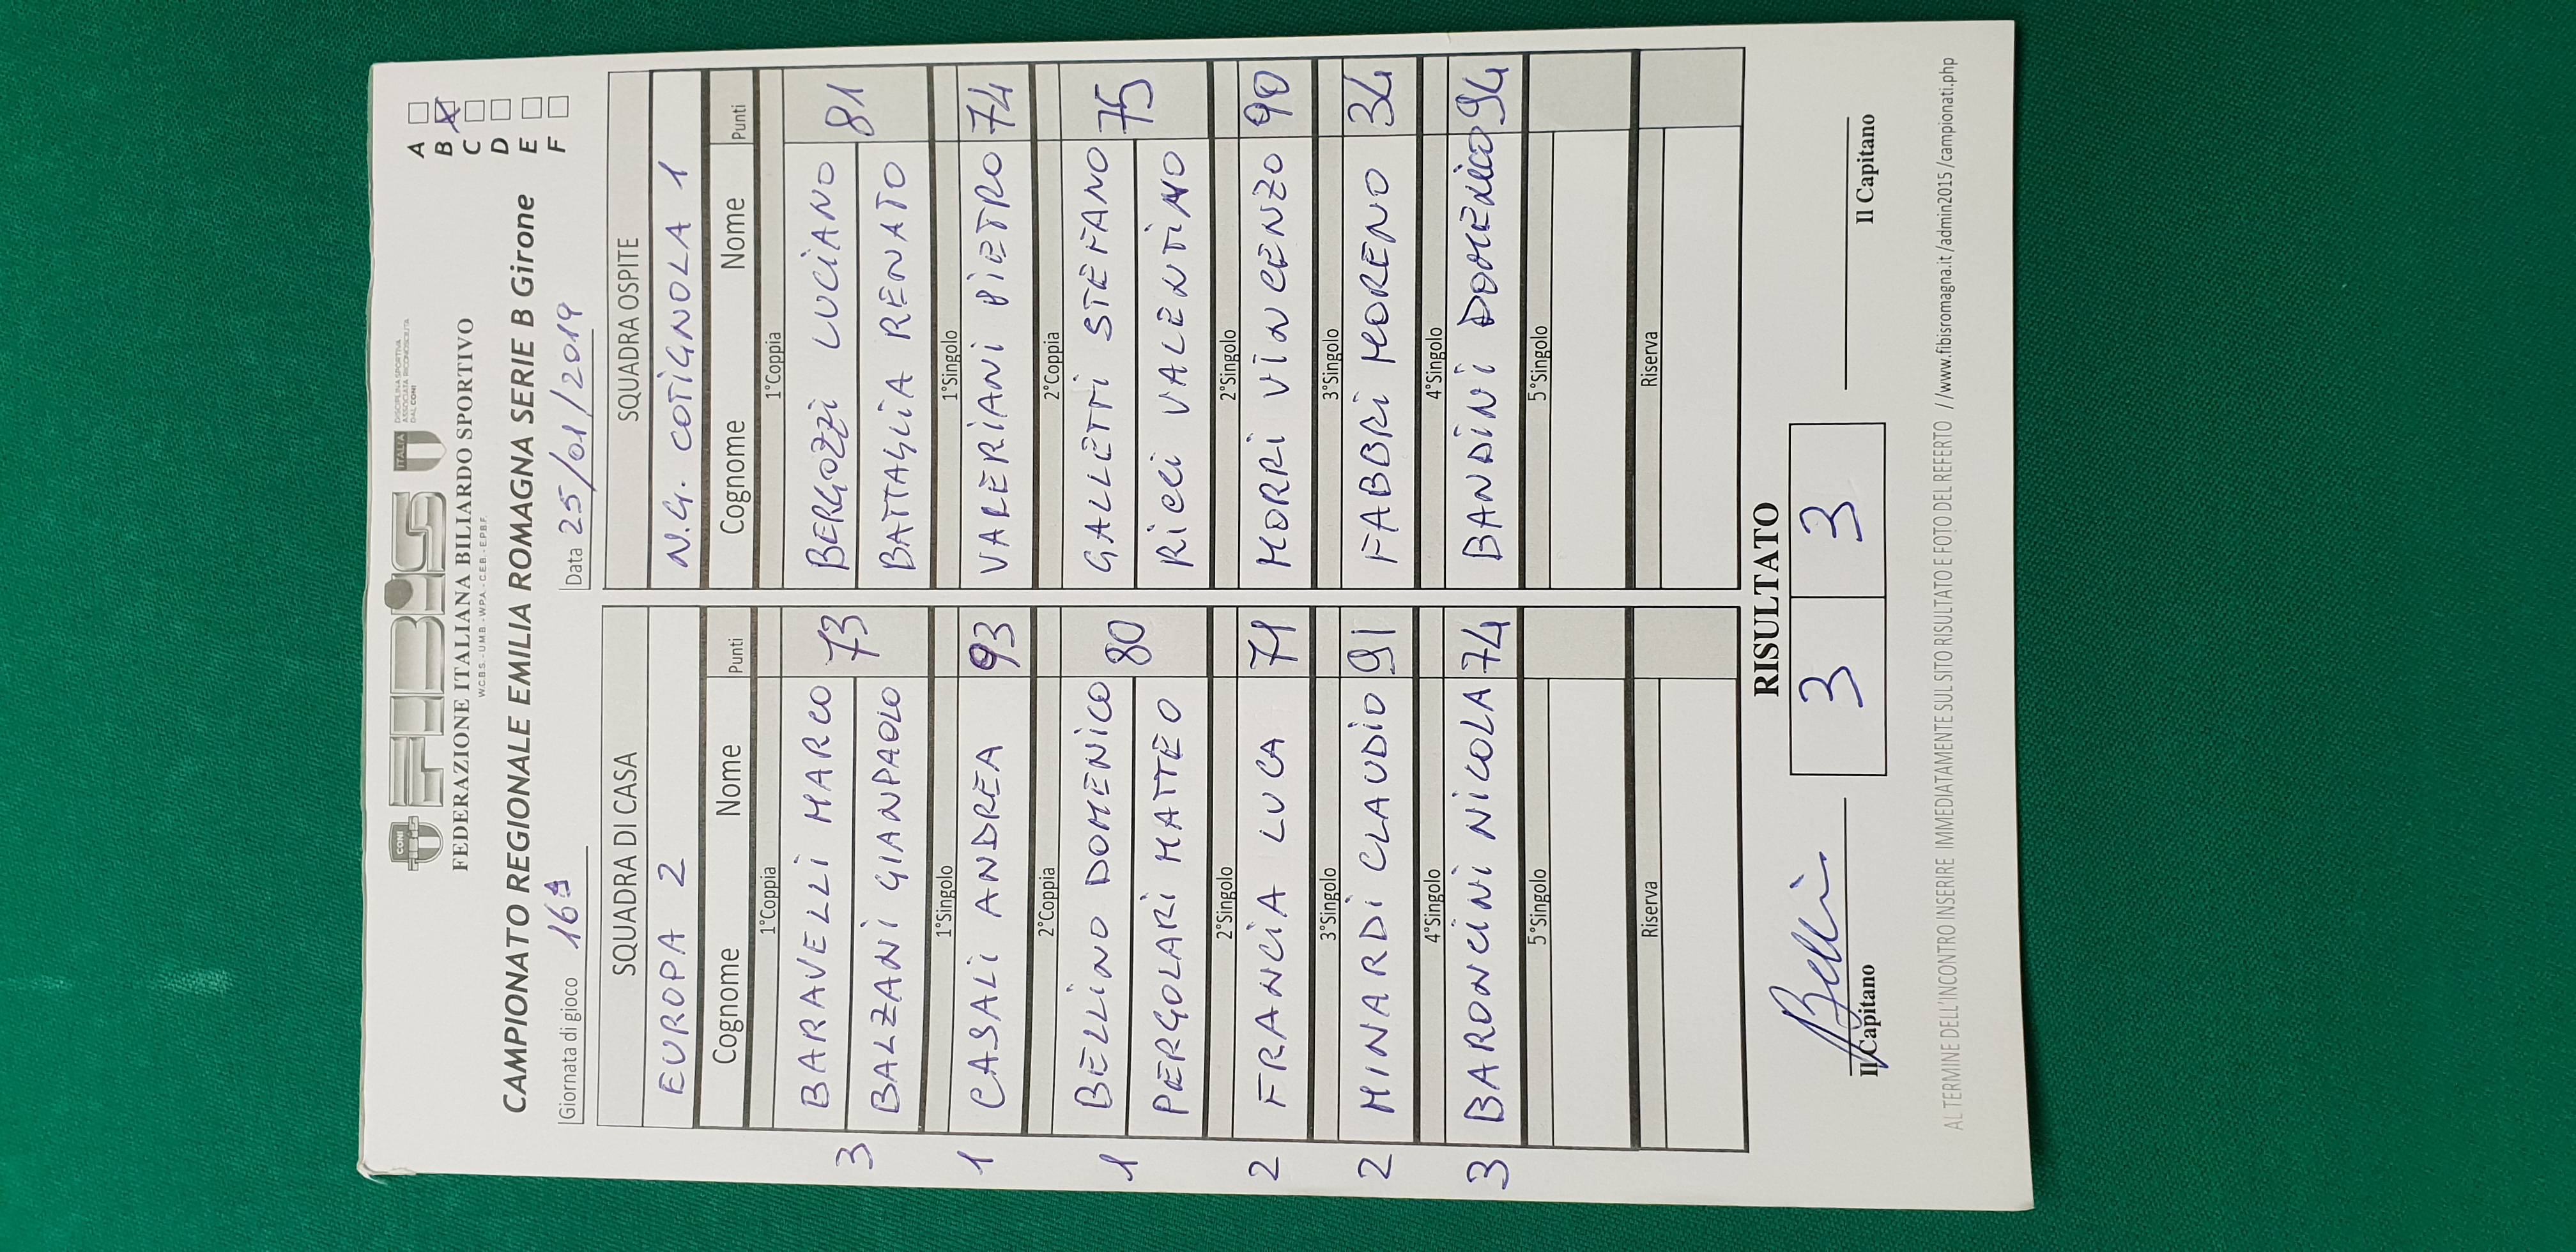 CONI
FIBiS
ITALIA
DISCIPLINA SPORTIVA
ASSOCIATA RICONOSCIUTA
DAL CONI
FEDERAZIONE ITALIANA BILIARDO SPORTIVO
W.C.B.S. - U.M.B. - W.P.A. - C.E.B. - E.P.B.F.
CAMPIONATO REGIONALE EMILIA ROMAGNA SERIE B Girone
A
B X
C
D
E
F
Giornata di gioco 16ª Data 25/01/2019
SQUADRA DI CASA SQUADRA OSPITE
EUROPA 2 N.G. COTIGNOLA 1
Cognome Nome Punti Cognome Nome Punti
1°Coppia 1°Coppia
3 BARAVELLI MARCO 73 BERGOZZI LUCIANO 81
BALZANI GIANPAOLO BATTAGLIA RENATO
1°Singolo 1°Singolo
1 CASALI ANDREA 93 VALERIANI PIETRO 74
2°Coppia 2°Coppia
1 BELLINO DOMENICO 80 GALLETTI STEFANO 75
PERGOLARI MATTEO RICCI VALENTINO
2°Singolo 2°Singolo
2 FRANCIA LUCA 71 MORRI VINCENZO 90
3°Singolo 3°Singolo
2 MINARDI CLAUDIO 91 FABBRI MORENO 34
4°Singolo 4°Singolo
3 BARONCINI NICOLA 74 BANDINI DOMENICO 94
5°Singolo 5°Singolo
Riserva Riserva
RISULTATO
3 3
Il Capitano Il Capitano
AL TERMINE DELL'INCONTRO INSERIRE IMMEDIATAMENTE SUL SITO RISULTATO E FOTO DEL REFERTO //www.fibisromagna.it/admin2015/campionati.php